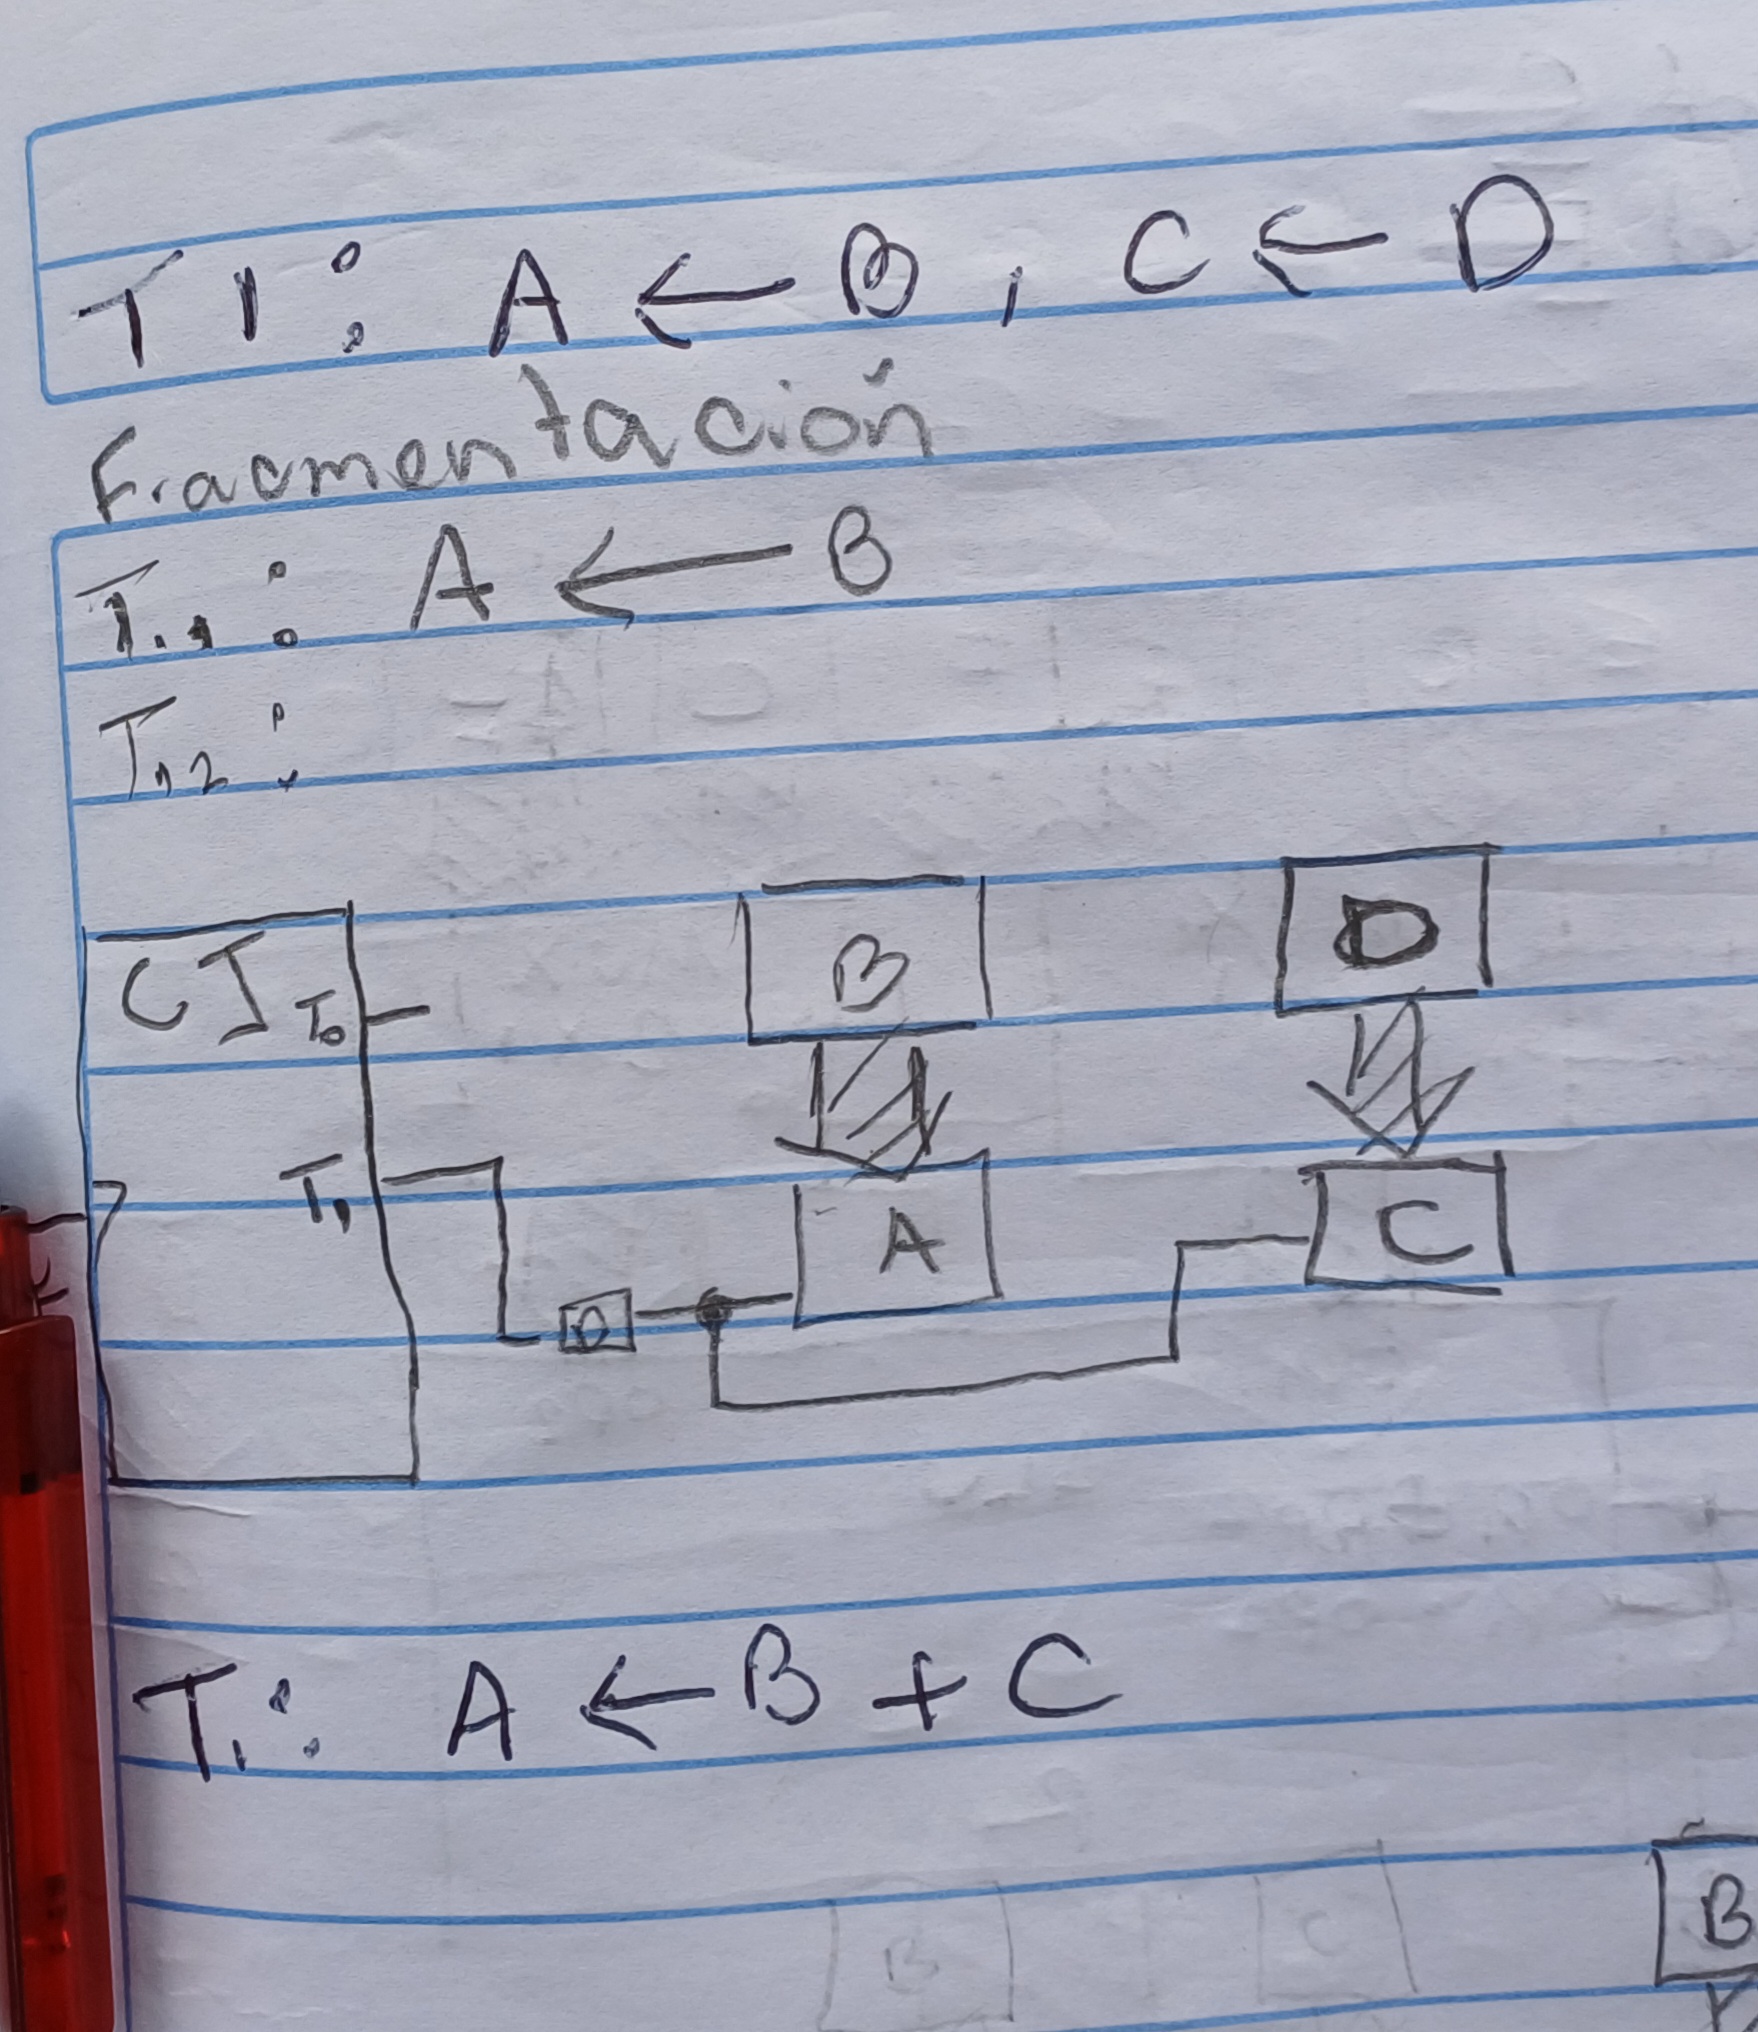 T1: A ← B, C ← D
Fracmentación
T1.1: A ← B
T1.2:
B D
CI T0
T1 A C
D
T1: A ← B + C
B C B